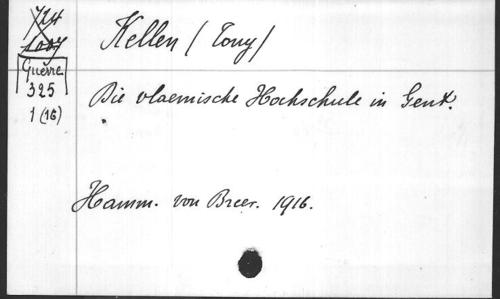 724
1007
Guerre
325
1 (16)
Kellen / Tony /
Die vlaemische Hochschule in Gent.
Hamm. von Breer. 1916.